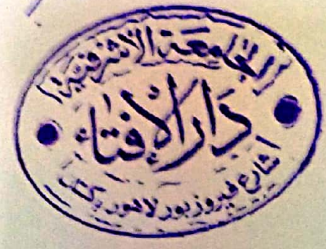 الجامعة الأشرفية
دَارُ الإفتاء
شارع فيروزبور لاهور باكستان